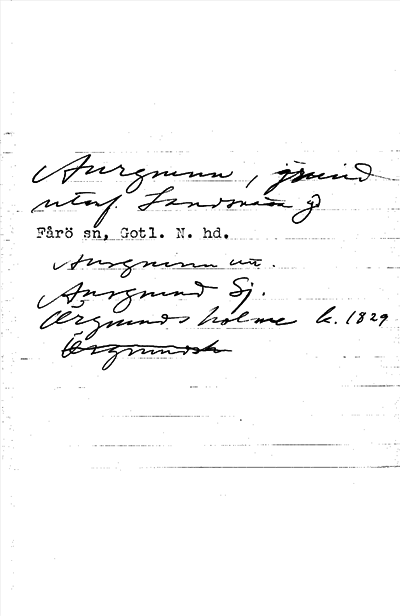 Aurgrunn, grund
utaf. Landsnäs gd
Fårö sn, Gotl. N. hd.
Aurgrunn utt.
Aurgrund Sj.
Örgrunds holme k. 1829
Örgrundsh